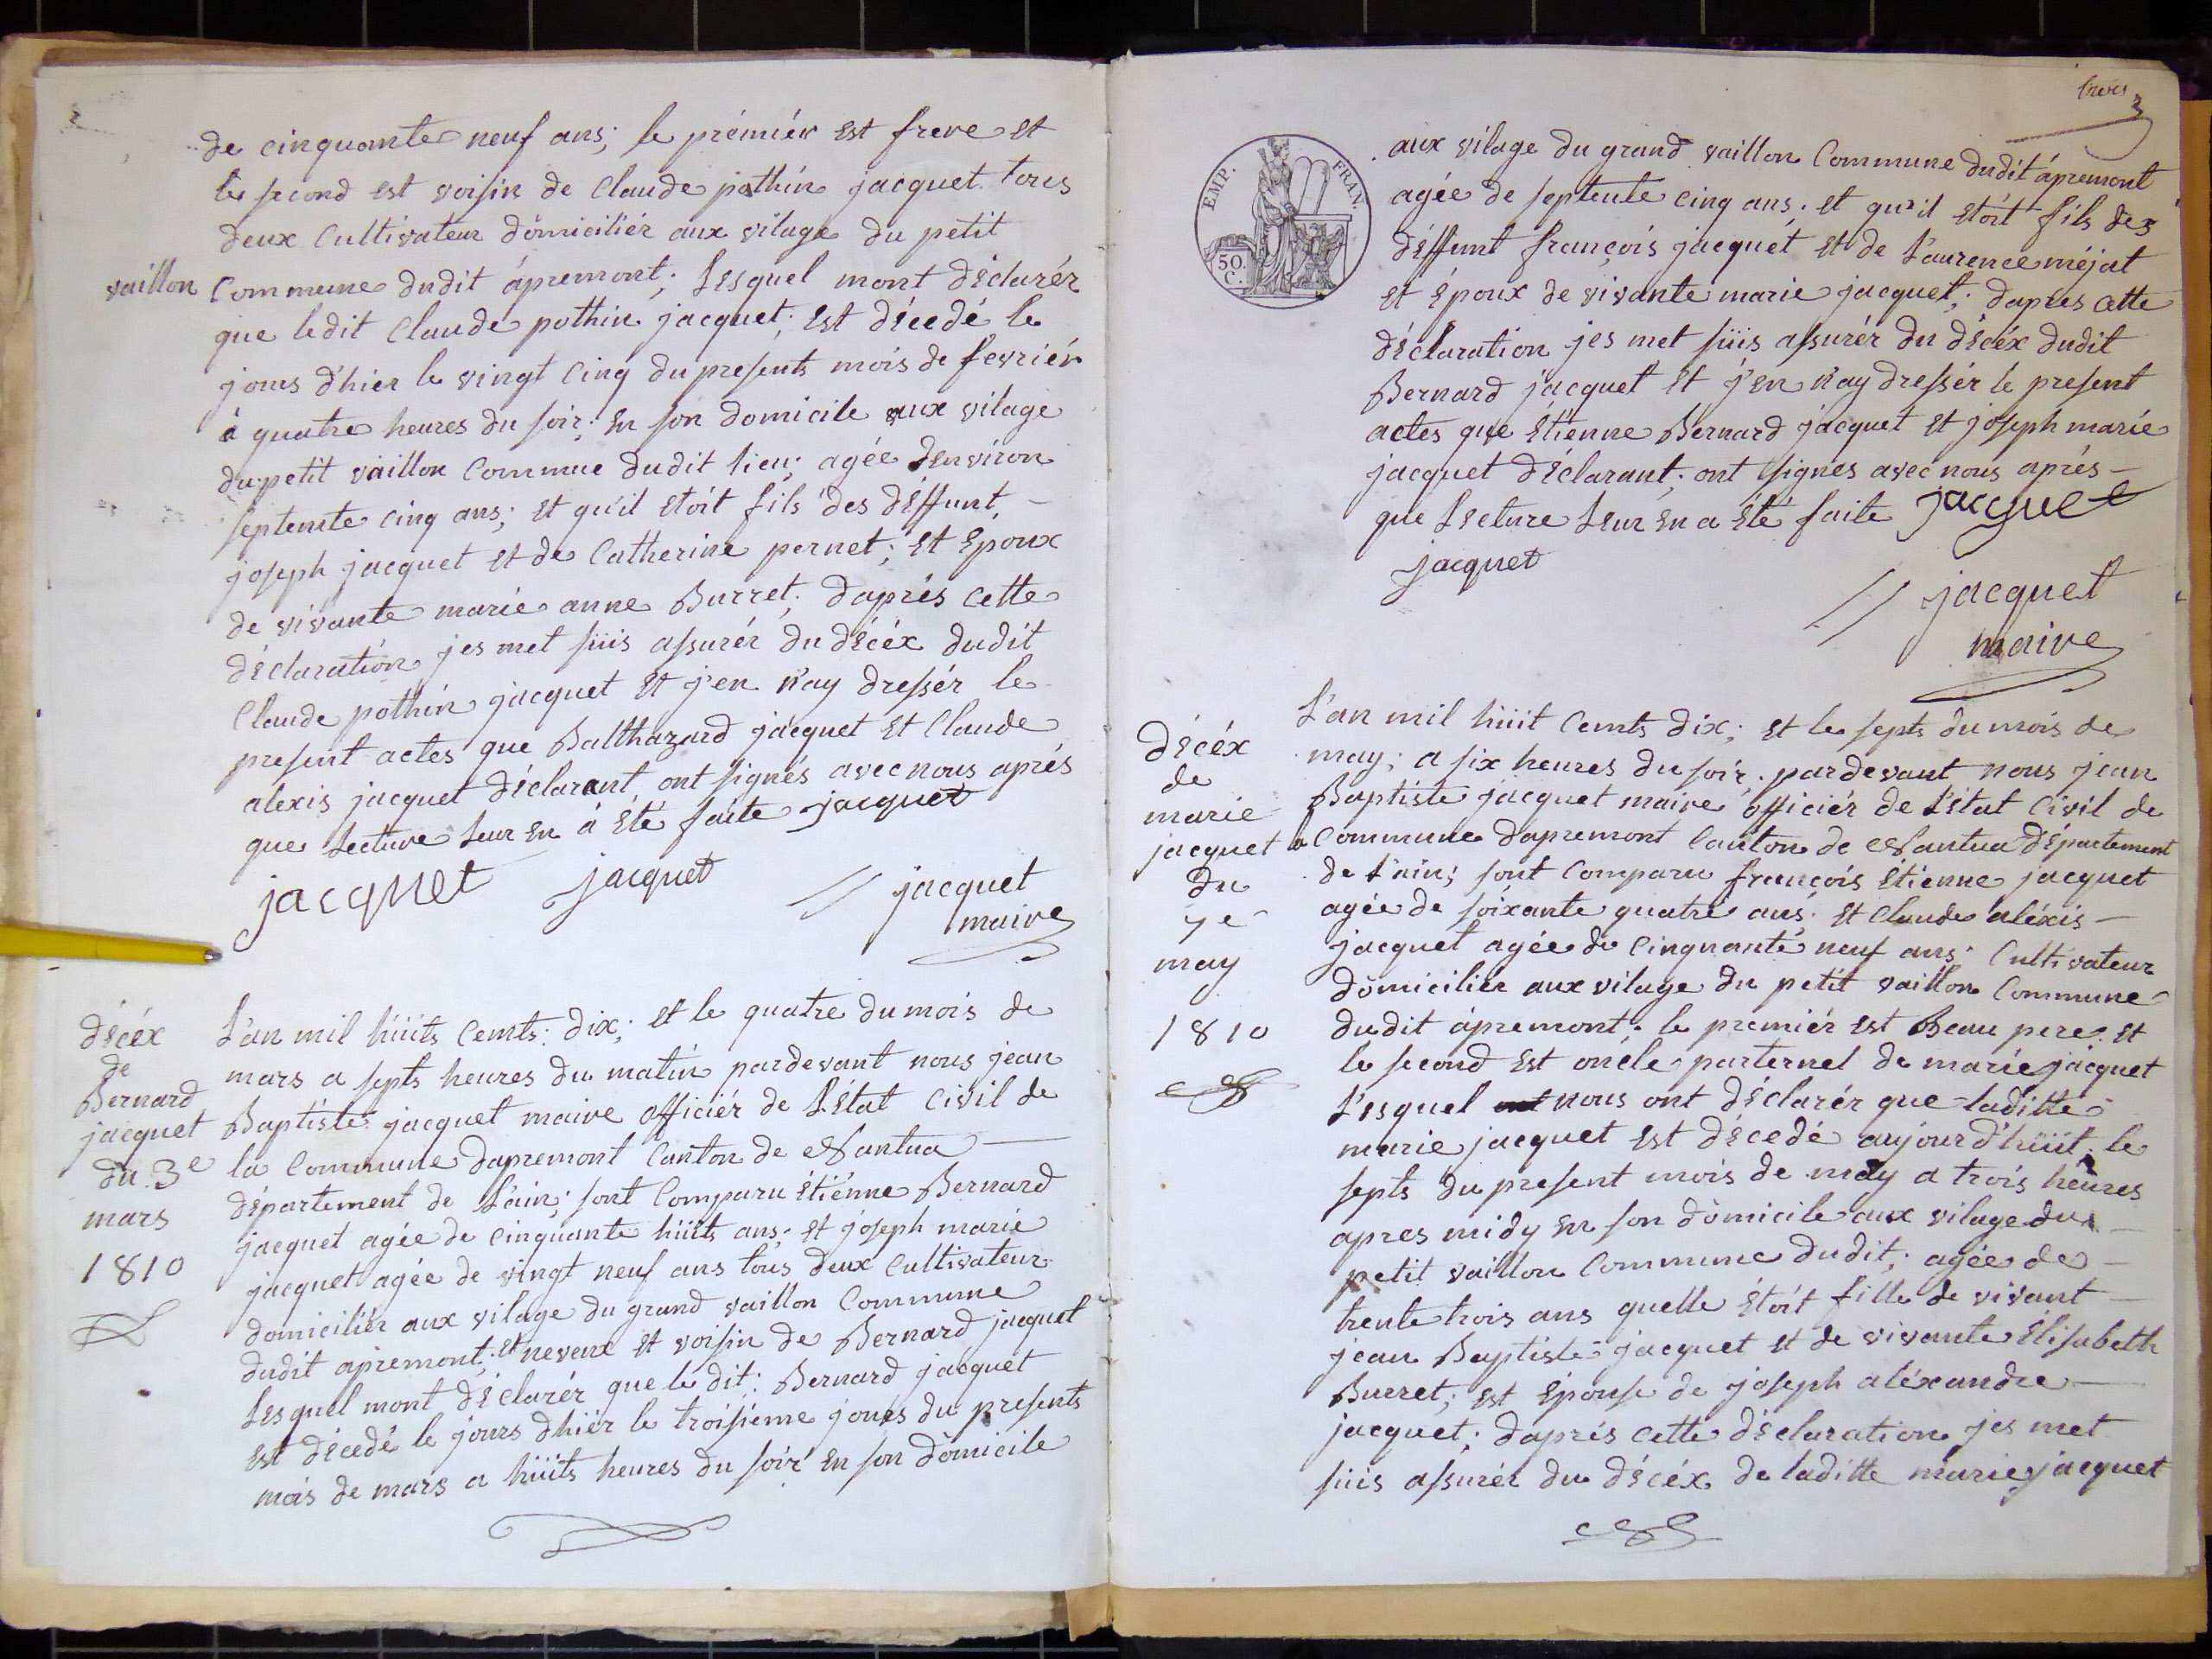 de cinquante neuf ans; le prémiér est frere et
le second est voisin de Claude pothin jacquet tous
deux Cultivateur dômiciliér aux vilage du petit
vaillon Commune dudit ápremont; Lesquel mont déclarér
que ledit Claude pothin jacquet; est décedé le
jours d'hier le vingt cinq du presents mois de fevriér
à quatre heures du soir; en son domicile aux vilage
du petit vaillon Commue dudit lieu; agée denviron
septente cinq ans; et qu'il étoit fils des déffunt, —
joseph jacquet et de Catherine pernet; et Époux
de vivante marie anne Burret; daprés cette
déclaration jes met suis assurér du décéx dudit
Claude pothin jacquet et j'en n'ay dressér le
present actes que Balthazard jacquet et Claude
alexis jacquet déclarant, ont signés avec nous aprés
que Lecture Leur en á été faite jacquet
jacquet jacquet // jacquet
maire
décéx
de
Bernard
jacquet
du 3e
mars
1810
L'an mil huits cemts; dix; et le quatre du mois de
mars a septs heures du matin pardevant nous jean
Baptiste jacquet maire officiér de L'état Civil de
la Commune dapremont Canton de Nantua —
département de L'ain; sont Comparu étiénne Bernard
jacquet agée de cinquante huits ans; et joseph marie
jacquet agée de vingt neuf ans tous deux Cultivateur
domiciliér aux vilage du grand vaillon Commune
dudit apremont; et neveux et voisin de Bernard jacquet
Lesquel mont déclarér que le dit; Bernard jacquet
est décedé le jours dhiér le troisiéme jours du presents
mois de mars a huits heures du soir en son dômicile
trois
3
EMP. FRAN.
50.
C.
aux vilage du grand vaillon Commune dudit ápremont
agée de septente cinq ans; et qu'il étoit fils des
déffunt françois jacquet et de Laurence méjat
et Époux de vivante marie jacquet; dapres cette
déclaration jes met suis assurér du décéx dudit
Bernard jacquet et j'en n'ay dressér le present
actes que étiénne Bernard jacquet et joseph marie
jacquet déclarant; ont signes avec nous aprés —
que Lecture Leur en a été faite jacquet
jacquet
// jacquet
maire
décéx
de
marie
jacquet
du
7e
may
1810
L'an mil huit Cemts dix; et le septs du mois de
may; a six heures du soir; pardevant nous jean
Baptiste jacquet maire officiér de L'état Civil de
la Commune dapremont Canton de Nantua département
de L'ain; sont Comparu françois étienne jacquet
agée de soixante quatre ans; et Claude aléxis —
jacquet agée de Cinquante neuf ans; Cultivateur
dômiciliér aux vilage du petit vaillon Commune
dudit ápremont; le premiér est Beau pere; et
le second est oncle parternel de marie jacquet
Lesquel nous ont déclarér que laditte
marie jacquet est décedé aujourd'huit le
septs du present mois de may a trois heures
apres midy en son dômicile aux vilage du —
petit vaillon Commune dudit; agée de —
trente trois ans quelle étoit fille de vivant —
jean Baptiste jacquet et de vivante Élisabeth
Burret; est épouse de joseph aléxandre —
jacquet; daprés cette déclaration jes met
suis assurér du décéx de laditte marie jacquet